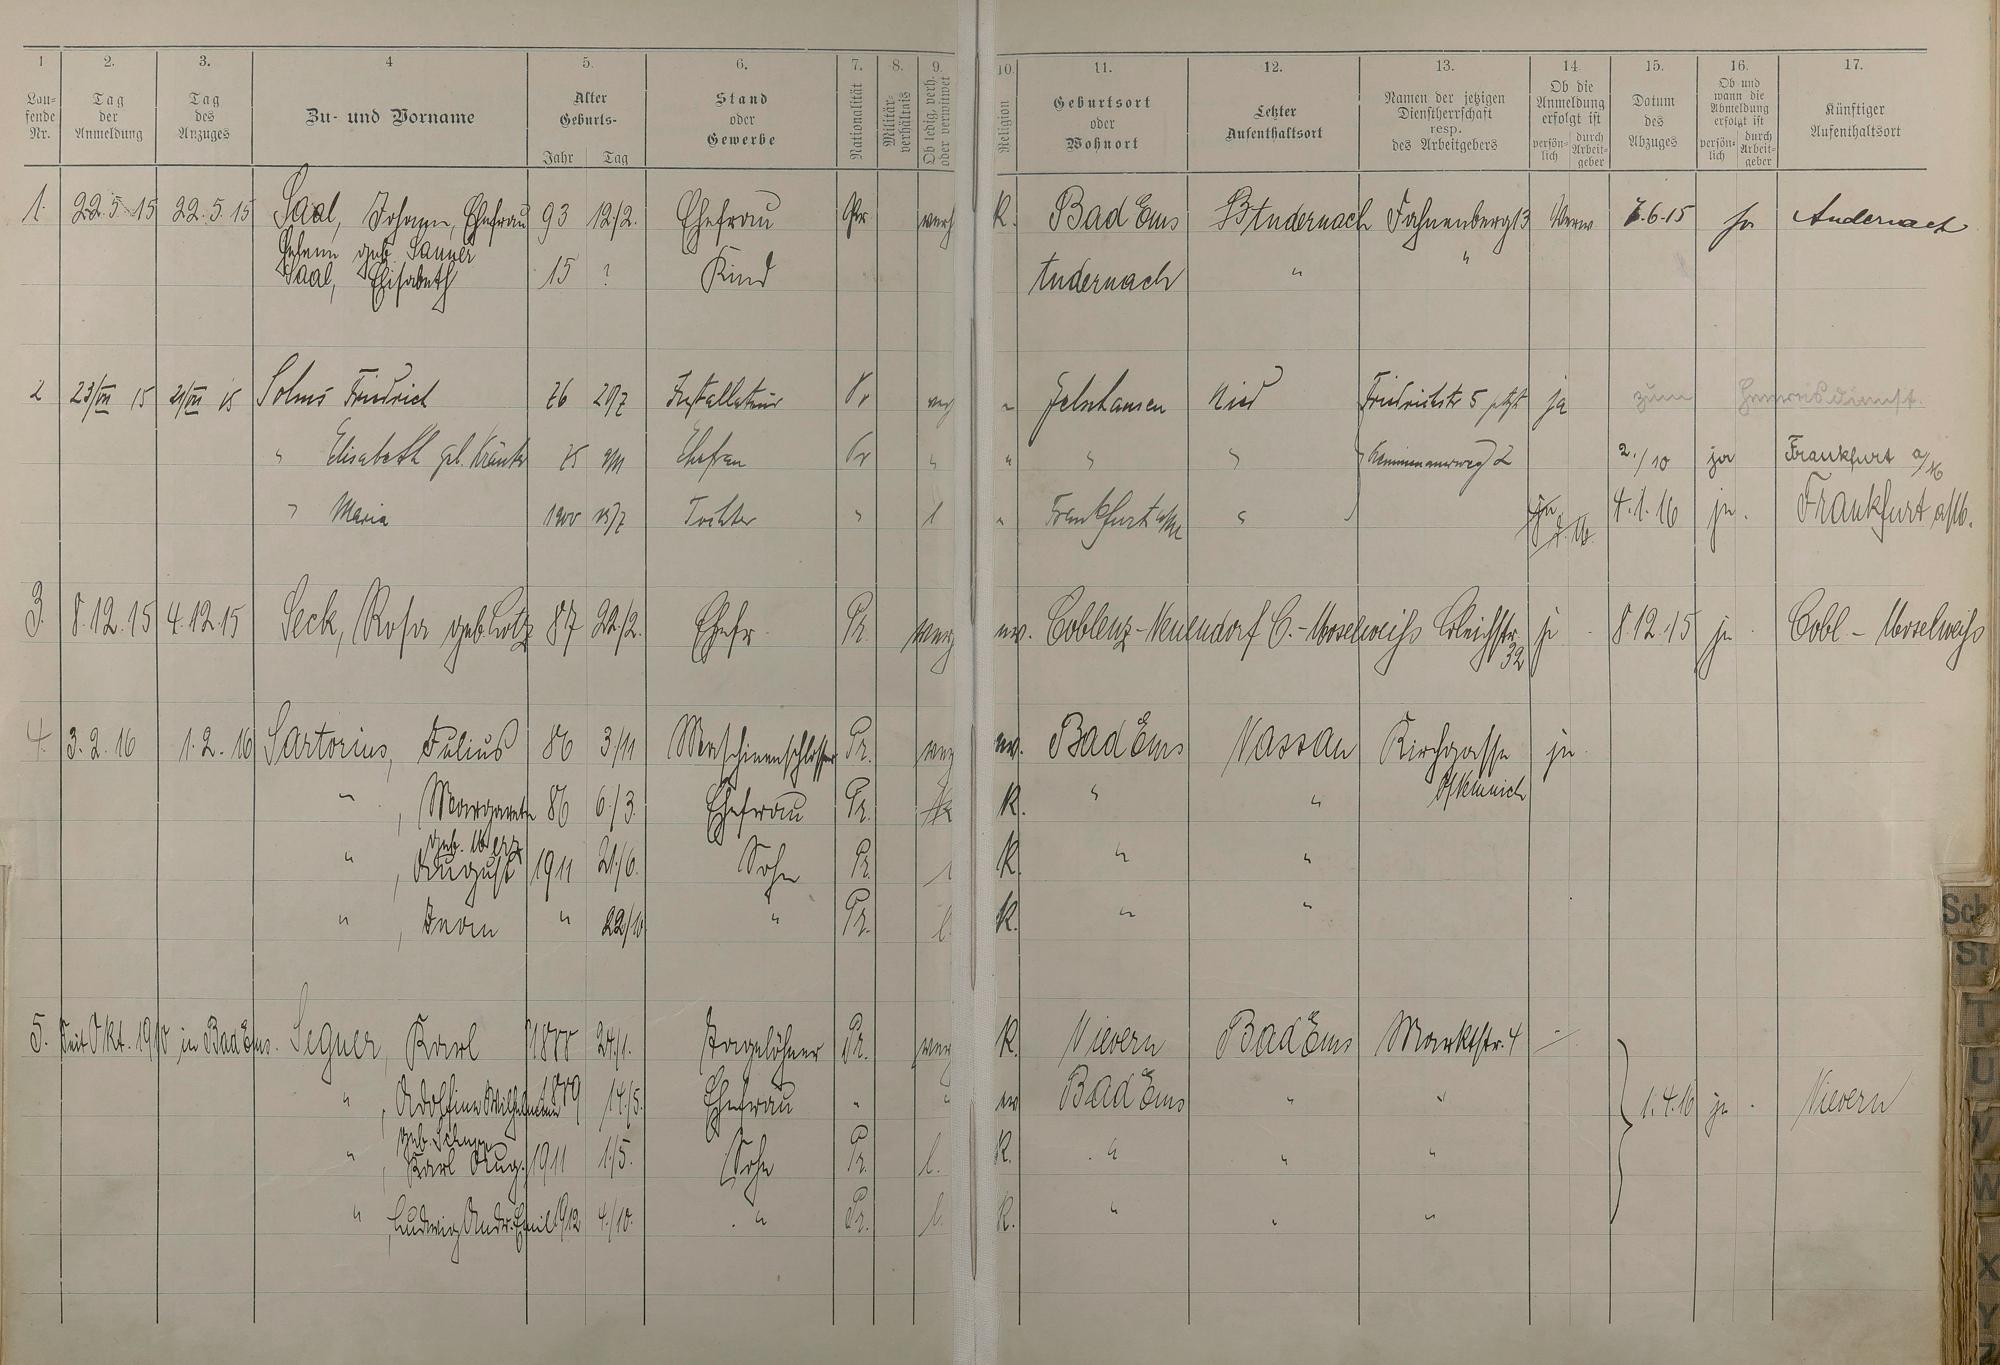 1 2. 3. 4 5. 6. 7. 8. 9. 10. 11. 12. 13. 14 15. 16. 17.
Lau-
fende
Nr.
Tag
der
Anmeldung
Tag
des
Anzuges
Zu- und Vorname
Alter
Geburts-
Jahr Tag
Stand
oder
Gewerbe
Nationalität
Militär-
verhältnis
Ob ledig, verh.
oder verwitwet
Religion
Geburtsort
oder
Wohnort
Letzter
Aufenthaltsort
Namen der jetzigen
Dienstherrschaft
resp.
des Arbeitgebers
Ob die
Anmeldung
erfolgt ist
persön-
lich
durch
Arbeit-
geber
Datum
des
Abzuges
Ob und
wann die
Abmeldung
erfolgt ist
persön-
lich
durch
Arbeit-
geber
Künftiger
Aufenthaltsort
1. 22.5.15 22.5.15 Saal, Johann, Ehefrau 93 12./2. Ehefrau Pr. verh K. Bad Ems Andernach Fahnenberg 13 7.6.15 ja Andernach
Helene geb.
Saal, Elisabeth 15 ? Kind Andernach " "
2 23/VII 15 21/VII 15 Solms Friedrich 76 20/7 Installateur Pr " Nied Friedrichstr 5 ja zum Heeresdienst.
" Elisabeth geb. 75 Ehefrau Pr " " " " 2 2./10 ja Frankfurt a/M
" Maria 1900 15/7 Tochter " l " Frankfurt a/M " 4.1.16 ja. Frankfurt a/M.
3. 8.12.15 4.12.15 Seck, Rosa geb. Lotz 87 22./2. Ehefr. Pr. verh ev. Coblenz-Neuendorf C.-Moselweiss Bleichstr. 32 ja 8.12.15 ja Cobl - Moselweiss
4. 3.2.16 1.2.16 Sartorius, Julius 86 3/11 Maschinenschlosser Pr. verh ev. Bad Ems Nassau Kirchgasse ja
" , Margarete 86 6./3. Ehefrau Pr. K. " "
geb. Merz
" , August 1911 21/6. Sohn Pr. l K. " "
" , " 22/10 " Pr. l. K. " "
5. Seit Okt. 1910 in Bad Ems. Segner, Karl 1888 24./1. Tagelöhner Pr. verh K. Nievern Bad Ems Marktstr. 4 -
" , Adolfine Wilhelmine 1889 14./5. Ehefrau " " ev Bad Ems " " 1.4.16 ja Nievern
" , Karl Aug. 1911 1./5. Sohn Pr. l. K. " " "
" , Ludwig Andr. Emil 1912 4./10. " Pr. l. K. " " "
Sch
St
T
U
V
W
X
Y
Z